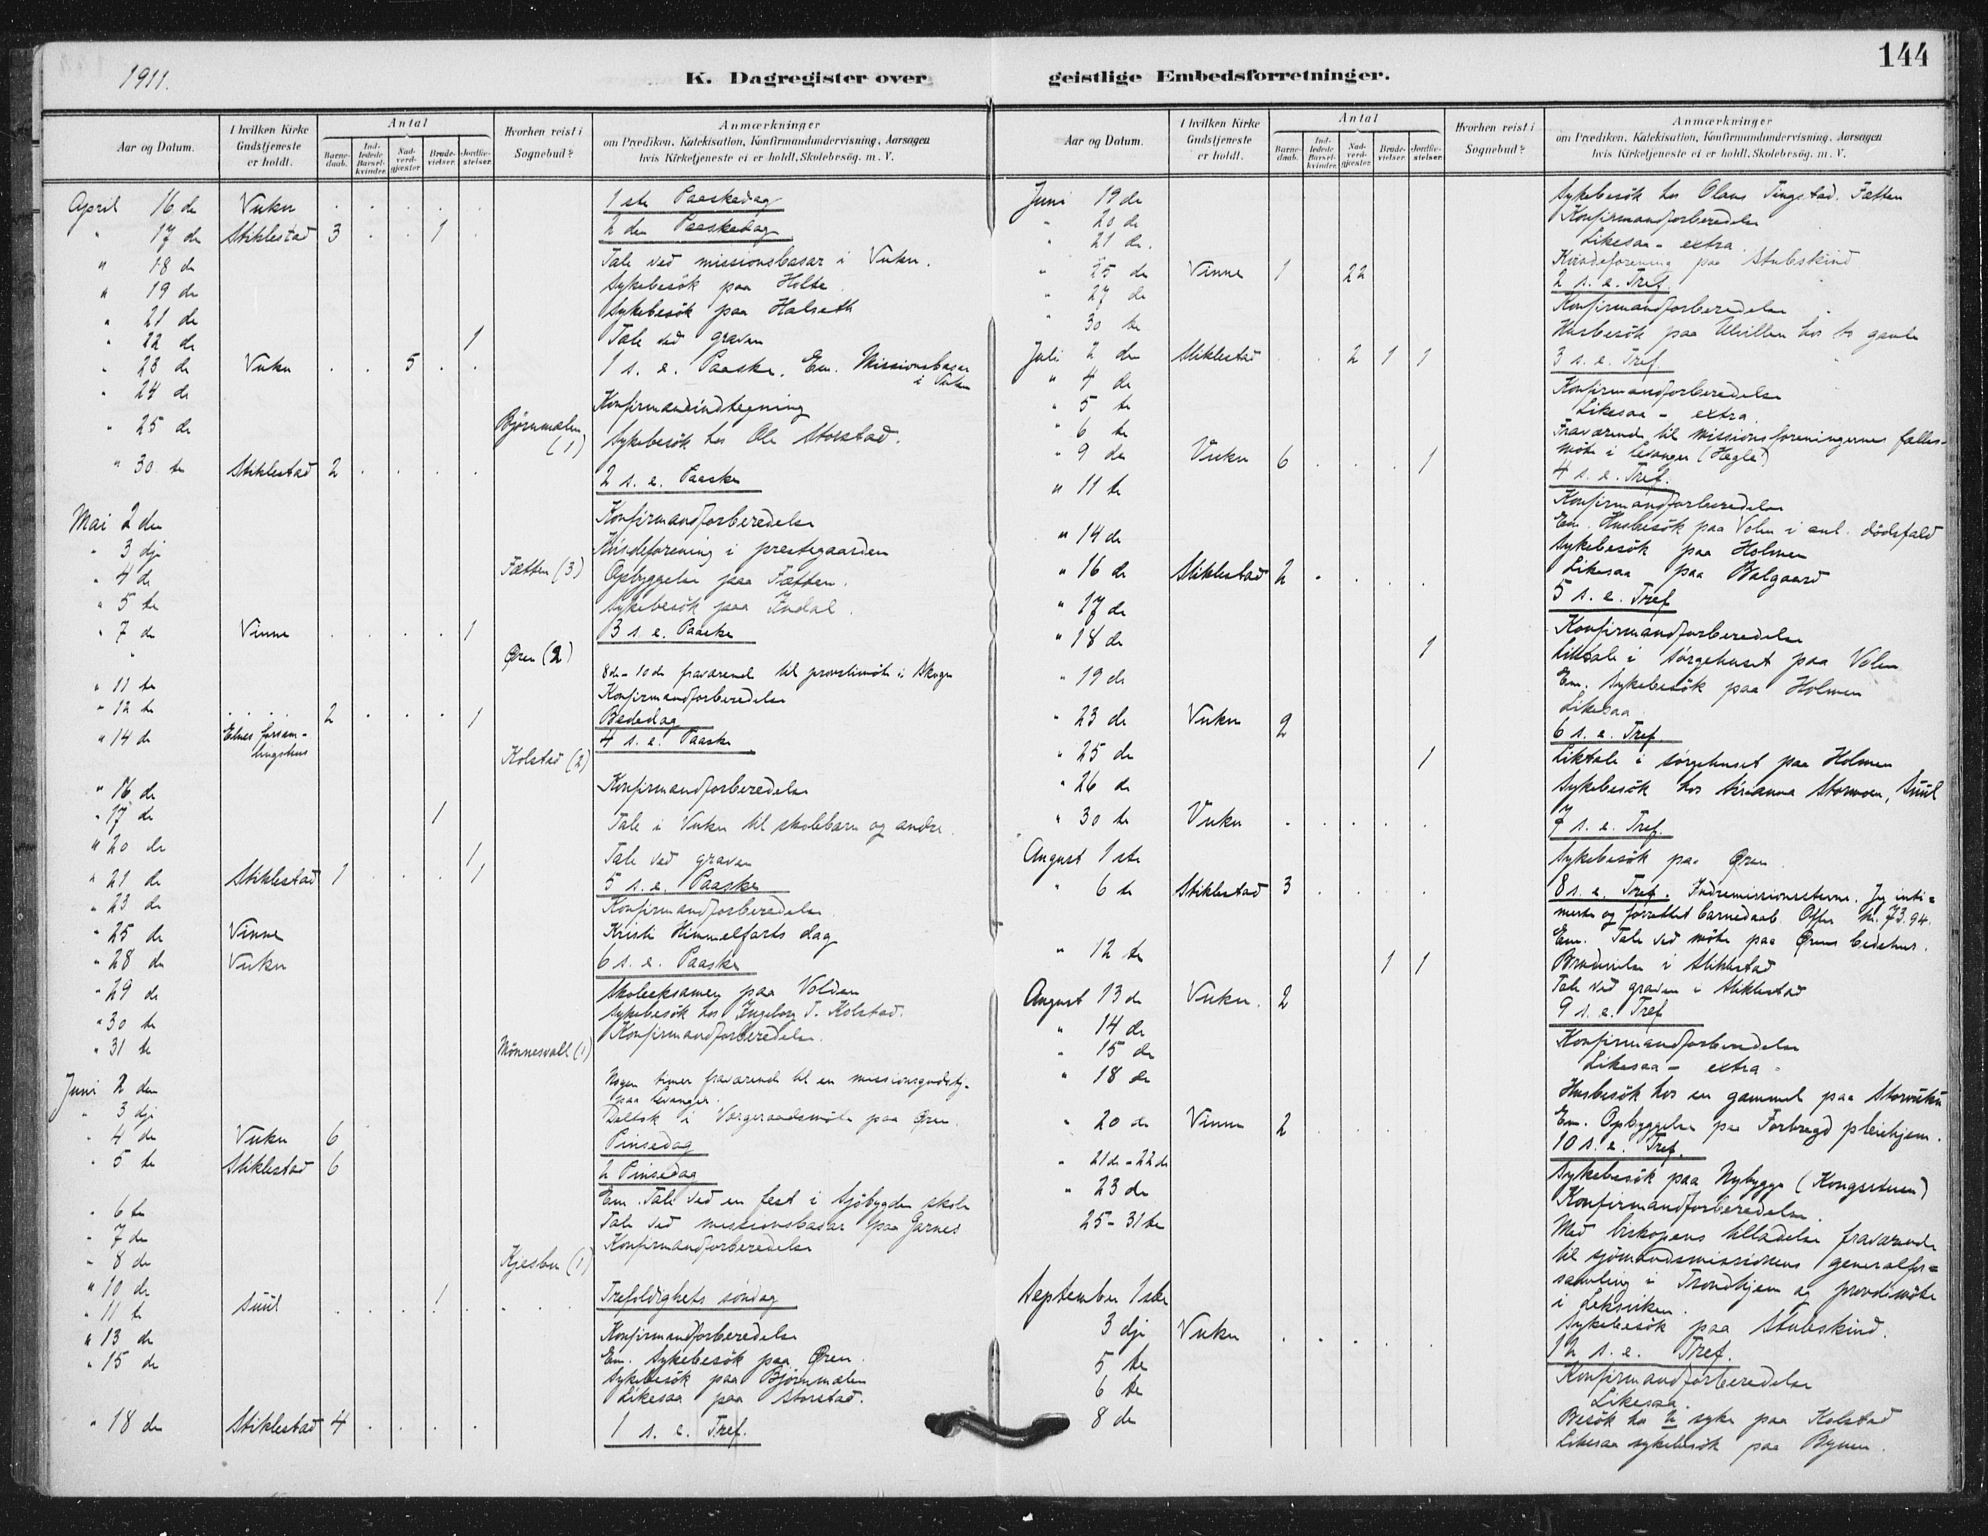 144
1911.
K. Dagregister over geistlige Embedsforretninger.
Aar og Datum. I hvilken Kirke Gudstjeneste er holdt. Antal Barnedaab. Indledede Barselkvinder. Nadverdgjester Brudevielser. Jordfæstelser. Hvorhen reist i Sognebud? Anmærkninger om Prædiken, Katekisation, Konfirmandundervisning, Aarsagen hvis Kirketjeneste ei er holdt, Skolebesøg. m. V.
April 16 de Vuku . . . . . 1 ste Paaskedag
" 17 de Stiklestad 3 . . 1 2 den Paaskedag
" 18 de Tale ved missionsbasar i Vuku.
" 19 de Sykebesök paa Holte
" 21 de Sykebesök paa Halseth
" 22 de 1 Tale ved graven
" 23 de Vuku . . 5 . . 1 s. e. Paaske. Em. Missionsbasar i Vuku
" 24 de Konfirmandindtegning
" 25 de Bjørnmælen (1) Sykebesök hos Ole Storstad.
" 30 te Stiklestad 2 . . . . 2 s. e. Paaske
Mai 2 den Konfirmandforberedelse
" 3 dje Kvindeforening i prestegaarden
" 4 de Fætten (3) Opbyggelse paa Fætten.
" 5 te Sykebesök paa Indal.
" 7 de Vinne . . . . 1 3 s. e. Paaske
Øren (2)
8de - 10de fraværende til provstimöte i Skogn
" 11 te Konfirmandforberedelse
" 12 te . . . . 2 . . . 1 Bededag
" 14 de Elnes forsamlingshus 4 s. e. Paaske
Kolstad (2)
" 16 de Konfirmandforberedelse
" 17 de 1 Tale i Vuku til skolebarn og andre.
" 20 de 1 Tale ved graven
" 21 de Stiklestad 1 . . . 1 5 s. e. Paaske
" 23 de Konfirmandforberedelse.
" 25 de Vinne Kristi Himmelfarts dag
" 28 de Vuku 6 s. e. Paaske
" 29 de Skoleeksamen paa Volden
" 30 te Sykebesök hos Ingeborg T. Kolstad.
" 31 te Mönnesvald (1) Konfirmandforberedelse.
Juni 2 den Nogen timer fraværende til en missionsgudstj. paa Levanger.
" 3 dje Deltok i Værgeraadsmöte paa Øren.
" 4 de Vuku 6 Pinsedag
" 5 te Stiklestad 6 2 Pinsedag
Em. Tale ved en fest i Sjöbygden skole
" 6 te Tale ved missionsbasar paa Garnes
" 7 de Konfirmandforberedelse
" 8 de Kjesbu (1)
" 10 de 1
" 11 te Suul . . . . . . . Trefoldighets söndag
" 13 de Konfirmandforberedelse
Em. Sykebesök paa Øren.
" 15 de Sykebesök paa Bjørnmælen
Likesaa paa Storstad.
" 18 de Stiklestad 4 . . . . 1 s. e. Tref.
Aar og Datum. I hvilken Kirke Gudstjeneste er holdt. Antal Barnedaab. Indledede Barselkvinder. Nadverdgjester Brudevielser. Jordfæstelser. Hvorhen reist i Sognebud? Anmærkninger om Prædiken, Katekisation, Konfirmandundervisning, Aarsagen hvis Kirketjeneste ei er holdt, Skolebesøg. m. V.
Juni 19 de Sykebesök hos Olaus Tingstad. Fætten
" 20 de Konfirmandforberedelse
" 21 de. Likesaa - extra
Kvindeforening paa Stubskind
" 25 de Vinne 1 22 2 s. e. Tref.
" 27 de Konfirmandforberedelse
" 30 te Husbesök paa Ulvillen hos to gamle
Juli 2 den Stiklestad . . 2 1 1 3 s. e. Tref
" 4 de Konfirmandforberedelse
" 5 te Likesaa - extra.
" 6 te Fraværende til missionsforeningernes fællesmöte i Levanger (Hegle)
" 9 de Vuku 6 . . . 1 4 s. e. Tref.
" 11 te Konfirmandforberedelse
Em. Husbesök paa Volen i anl. dödsfald
" 14 de Sykebesök paa Holmen
Likesaa paa Balgaard
" 16 de Stiklestad 2 . . . . 5 s. e. Tref
" 17 de
" 18 de 1 Konfirmandforberedelse
Liktale i sørgehuset paa Volen
Em. Sykebesök paa Holmen
" 19 de Likesaa
" 23 de Vuku 2 6 s. e. Tref
" 25 de 1 Liktale i sørgehuset paa Holmen
" 26 de Sykebesök hos Stormoen, Suul
" 30 te Vuku . . . . . 7 s. e. Tref.
August 1 ste Sykebesök paa Øren.
" 6 te Stiklestad 3 . . . . 8 s. e. Tref. Jeg intimerte og forrettet barnedaab. Offer kr. 73.94.
Em. Tale ved möte paa Ørens bedehus.
" 12 te 1 1 Brudevielse i Stiklestad
Tale ved graven i Stiklestad
August 13 de Vuku. 2 9 s. e. Tref
" 14 de
" 15 de Konfirmandforberedelse
Likesaa - extra.
" 18 de Husbesök hos en gammel paa Storvuku
Em. Opbyggelse paa Forbregd pleiehjem.
" 20 de Vinne 2 . . . . 10 s. e. Tref.
" 21 de - 22 de Sykebesök paa Nybygge (Kongsstuen)
" 23 de Konfirmandforberedelse.
25 - 31 te Med biskopens tilladelse fraværende
til sjömandsmissionens generalforsamling i Trondhjem og provstimöte
i Leksviken.
September 1 ste Sykebesök paa Stubskind.
3 dje Vuku . . . . . 12 s. e. Tref.
5 te Konfirmandforberedelse
6 te Likesaa.
8 de Besök hos 2 syke paa Kolstad
Likesaa sykebesök paa Bynen.